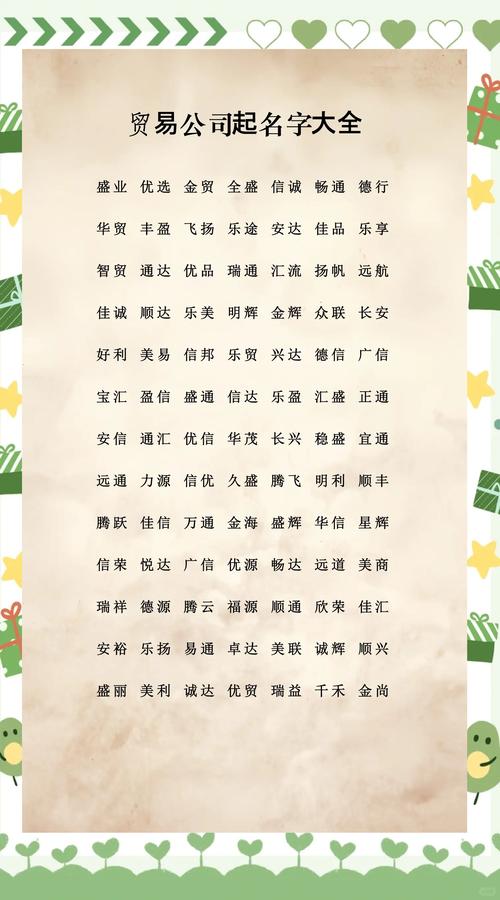 贸易公司起名字大全
盛业 优选 金贸 全盛 信诚 畅通 德行
华贸 丰盈 飞扬 乐途 安达 佳品 乐享
智贸 通达 优品 瑞通 汇流 扬帆 远航
佳诚 顺达 乐美 明辉 金辉 众联 长安
好利 美易 信邦 乐贸 兴达 德信 广信
宝汇 盈信 盛通 信达 乐盈 汇盛 正通
安信 通汇 优信 华茂 长兴 稳盛 宜通
远通 力源 信优 久盛 腾飞 明利 顺丰
腾跃 佳信 万通 金海 盛辉 华信 星辉
信荣 悦达 广信 优源 畅达 远道 美商
瑞祥 德源 腾云 福源 顺通 欣荣 佳汇
安裕 乐扬 易通 卓达 美联 诚辉 顺兴
盛丽 美利 诚达 优贸 瑞益 千禾 金尚